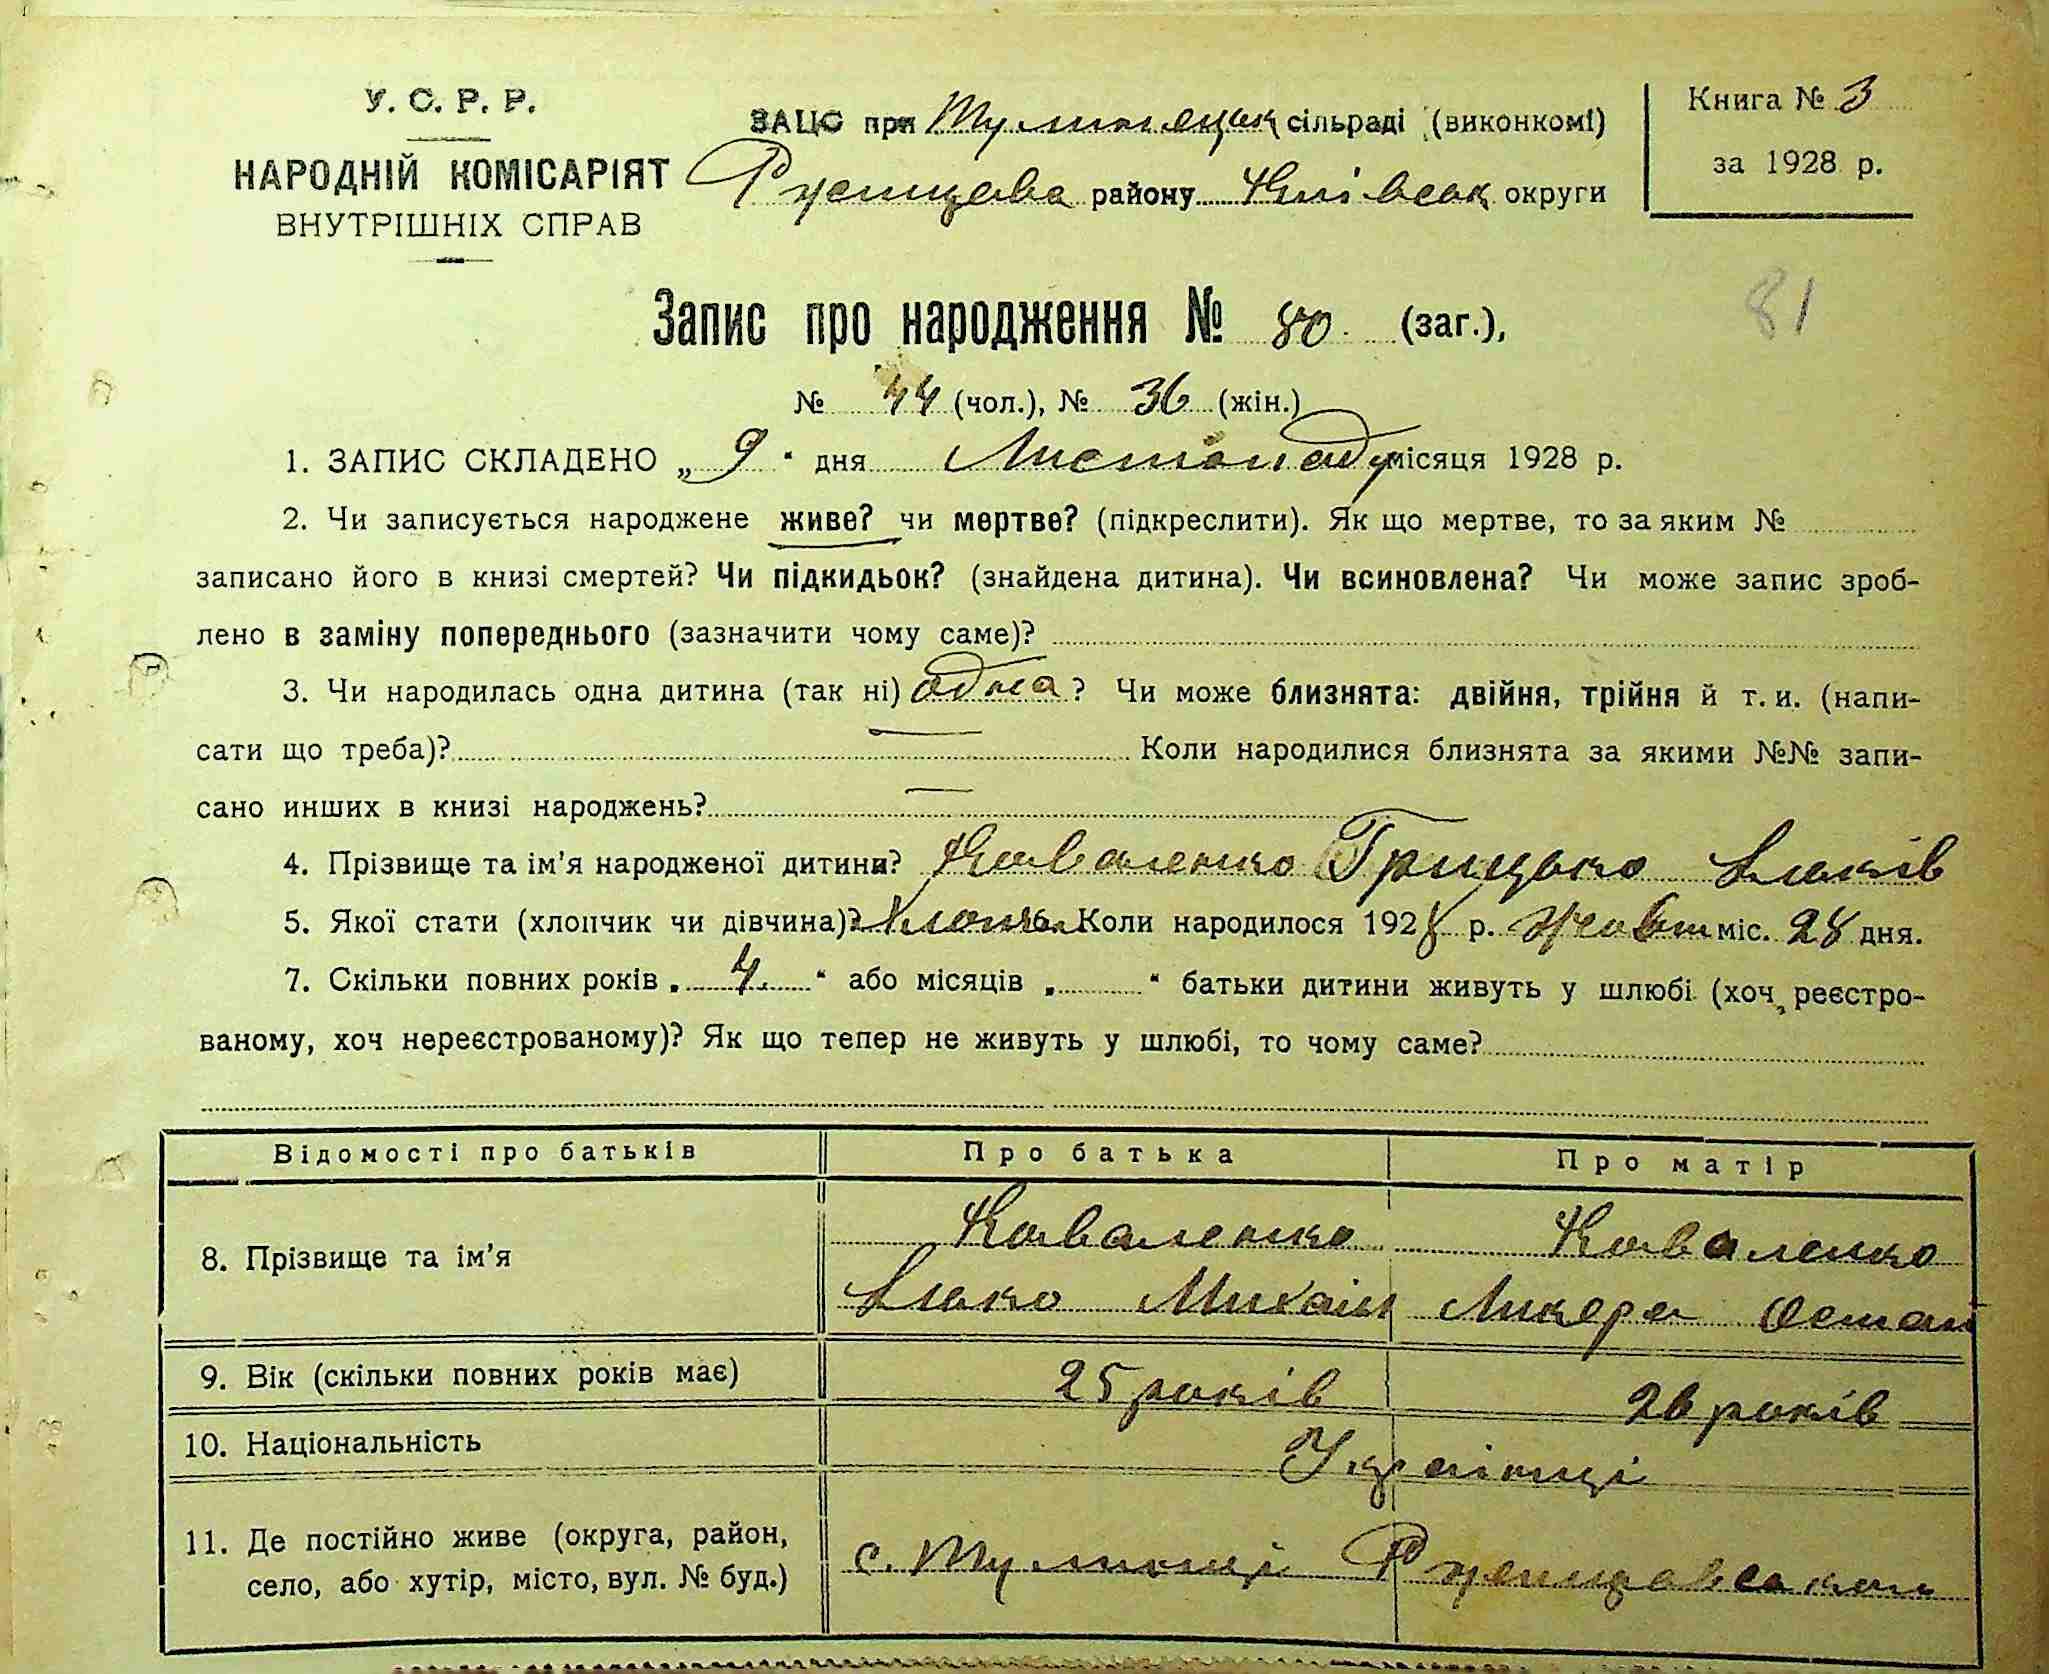 У. С. Р. Р.
НАРОДНІЙ КОМІСАРІЯТ
ВНУТРІШНІХ СПРАВ
ЗАЦС при сільраді (виконкомі)
району Київськ округи
Книга № 3
за 1928 р.
81
Запис про народження № 80 (заг.),
№ 44 (чол.), № 36 (жін.)
1. ЗАПИС СКЛАДЕНО „ 9 “ дня Листопаду місяця 1928 р.
2. Чи записується народжене живе? чи мертве? (підкреслити). Як що мертве, то за яким №
записано його в книзі смертей? Чи підкидьок? (знайдена дитина). Чи всиновлена? Чи може запис зроб-
лено в заміну попереднього (зазначити чому саме)?
3. Чи народилась одна дитина (так ні) одна? Чи може близнята: двійня, трійня й т. и. (напи-
сати що треба)? Коли народилися близнята за якими №№ запи-
сано инших в книзі народжень?
4. Прізвище та ім’я народженої дитини? Коваленко Грицько Яків
5. Якої стати (хлопчик чи дівчина)? Коли народилося 1928 р. Жовт міс. 28 дня.
7. Скільки повних років „ 4 “ або місяців „ “ батьки дитини живуть у шлюбі (хоч реєстро-
ваному, хоч нереєстрованому)? Як що тепер не живуть у шлюбі, то чому саме?
Відомості про батьків Про батька Про матір
8. Прізвище та ім’я Коваленко Коваленко
Михайл Ликера Остап
9. Вік (скільки повних років має) 25 років 26 років
10. Національність Українці
11. Де постійно живе (округа, район,
село, або хутір, місто, вул. № буд.) с. Тулинці